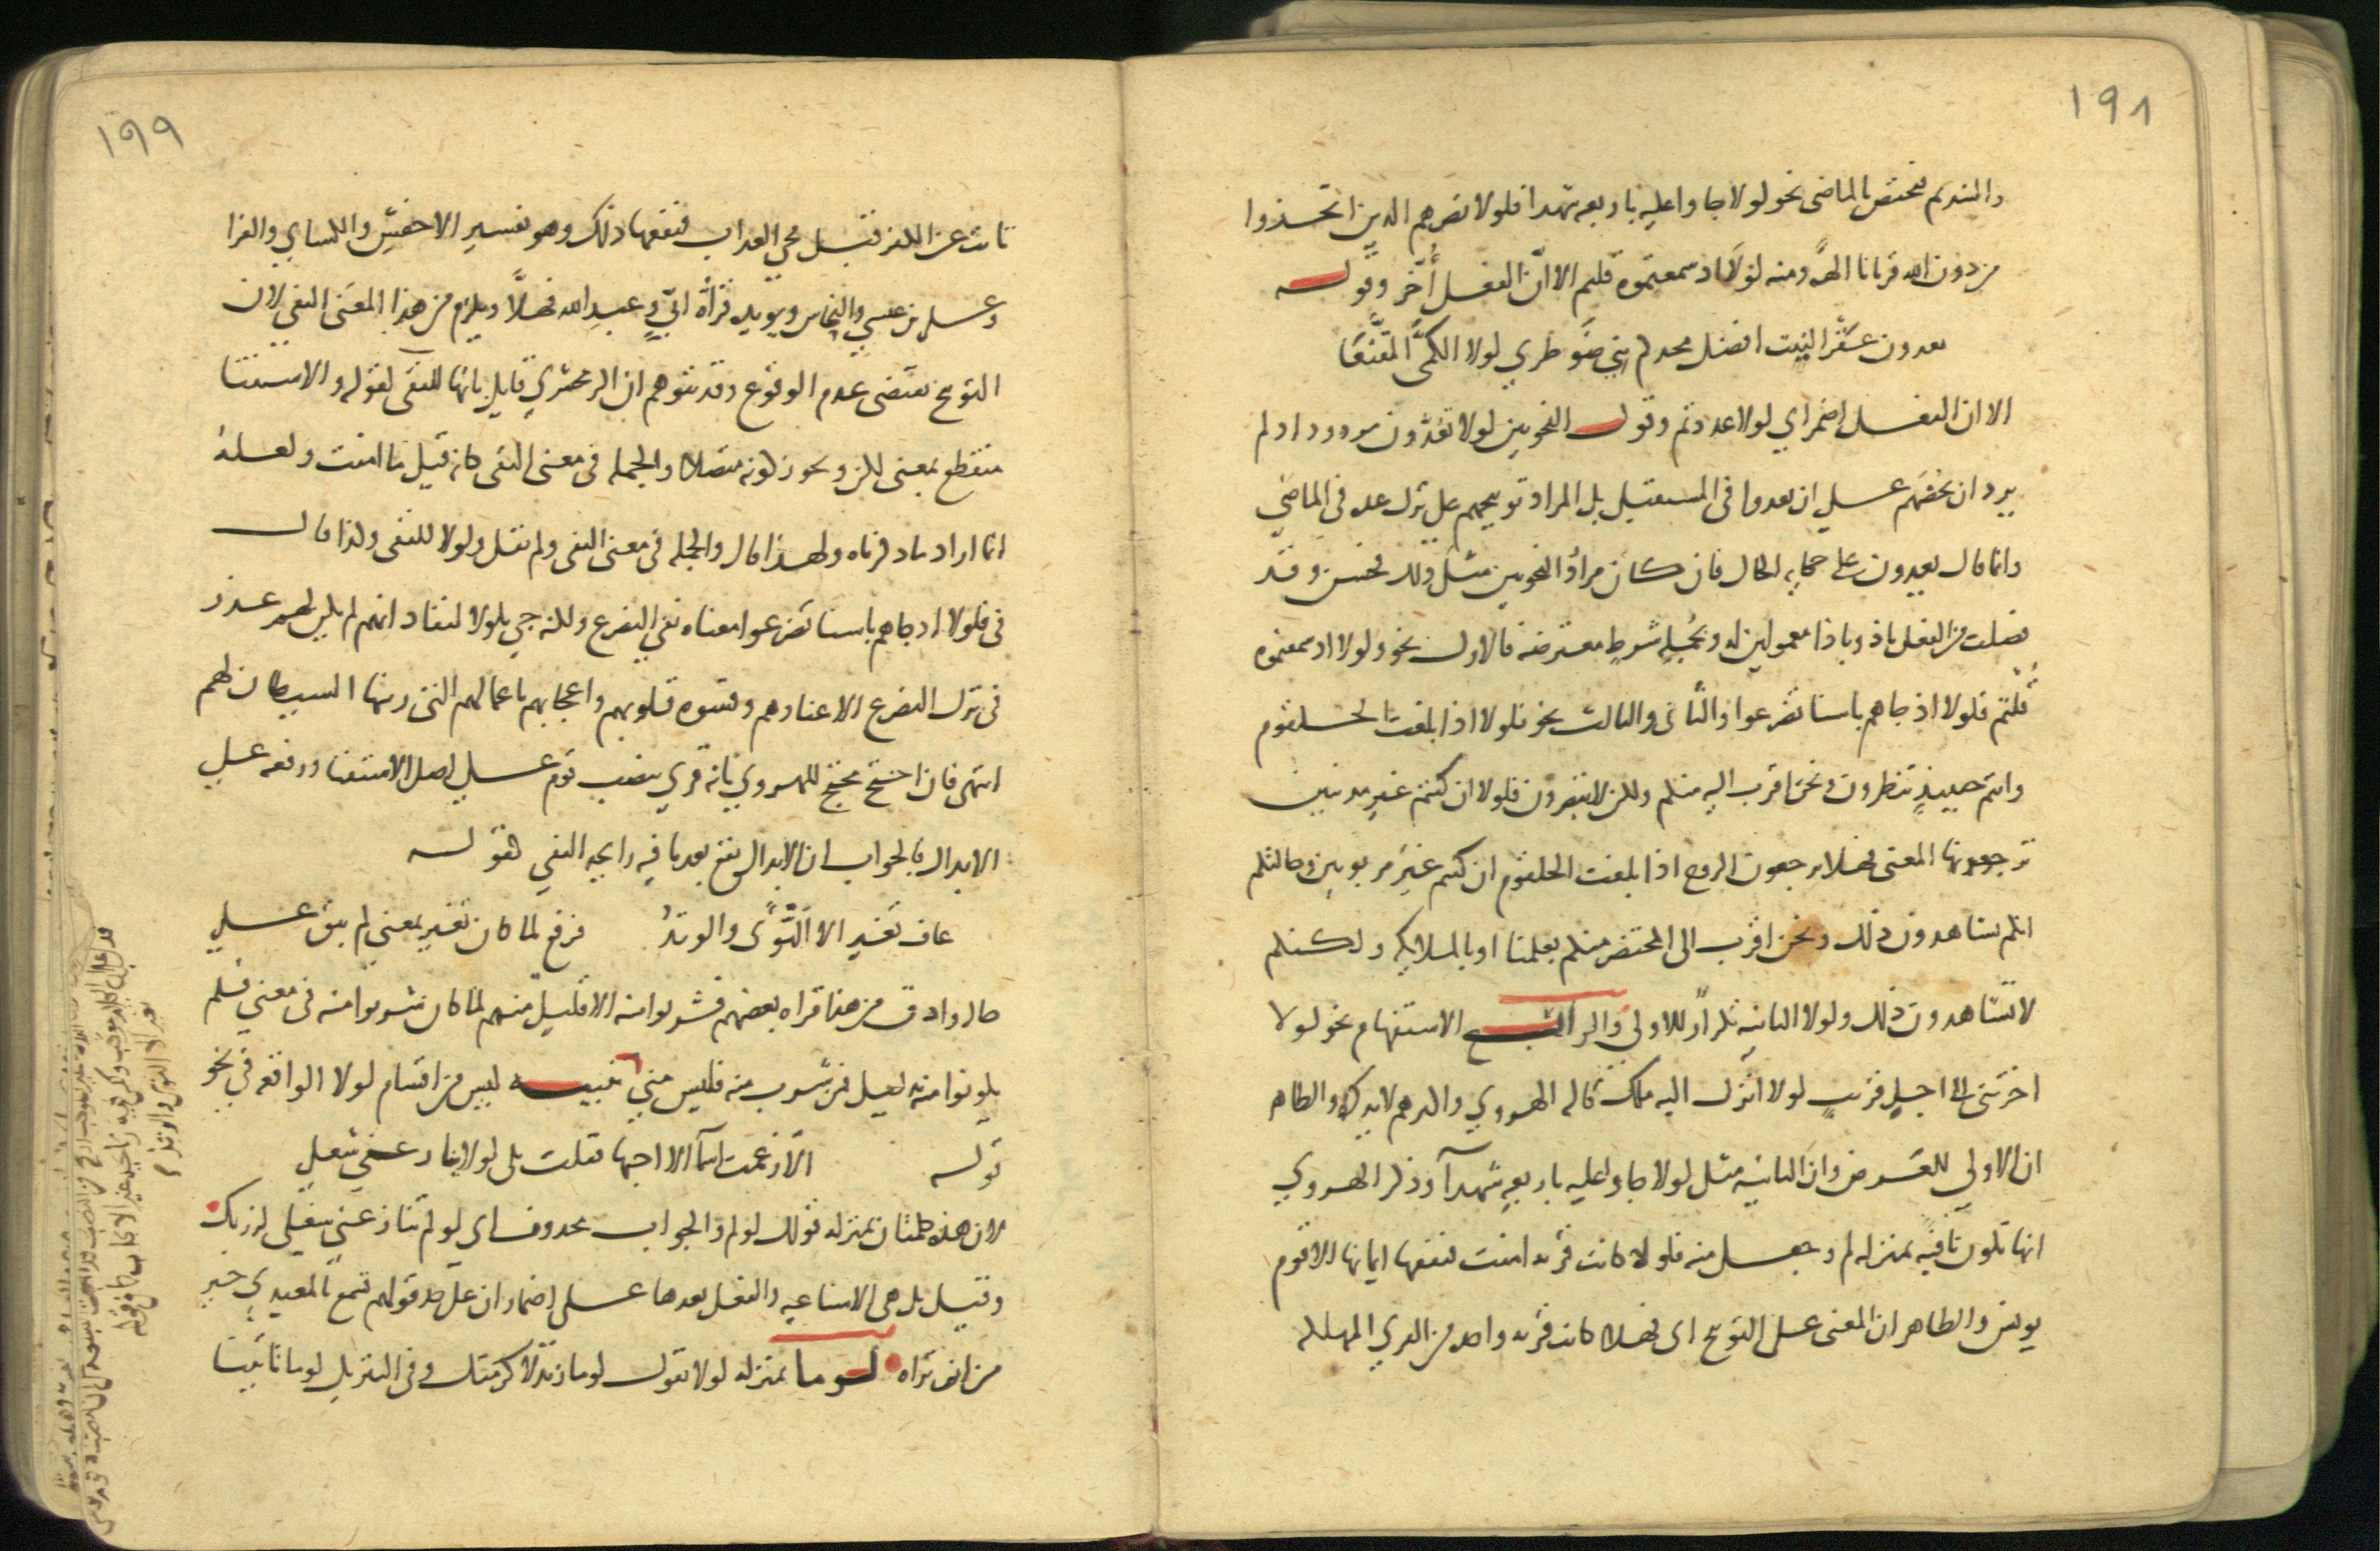 ١٩٨
والتنديم فتختص بالماضى نحو لولا جاوا عليه باربعه شهدا فلولا نصرهم الذين اتخذوا
من دون الله قربانا الهة ومنه لولا اذ سمعتموه قلتم الا ان الفعل أخر وقوله
تعدون عقر النيب افضل مجدكم بني ضوطرى لولا الكمى المقنعا
الا ان الفعل اضمر اي لولا عددتم وقول النحويين لولا تعدون مردود اذ لم
يرد ان يحضهم على ان يعدوا فى المستقبل بل المراد توبيخهم على ترك عده فى الماضي
وانما قال تعدون على حكايه الحال فان كان مراد النحويين مثل ذلك فحسن وقد
فصلت من الفعل باذ وباذا معمولين له وبجملة شرط معترضه فالاول نحو ولولا اذ سمعتموه
قلتم فلولا اذ جاهم باسنا تضرعوا والثانى والثالث نحو فلولا اذا بلغت الحلقوم
وانتم حينئذ تنظرون ونحن اقرب اليه منكم ولكن لا تبصرون فلولا ان كنتم غير مدينين
ترجعونها المعنى فهلا ترجعون الروح اذا بلغت الحلقوم ان كنتم غير مربوبين وحالتكم
انكم تشاهدون ذلك ونحن اقرب الى المحتضر منكم بعلمنا او بالملايكه ولكنكم
لا تشاهدون ذلك ولولا الثانيه تكرار للاولى والرابع الاستفهام نحو لولا
اخرتنى الى اجل قريب لولا انزل اليه ملك قاله الهروي واكثرهم لا يذكره والظاهر
ان الاولى للعرض وان الثانيه مثل لولا جاوا عليه باربعة شهدآ وذكر الهروي
انها تكون نافية بمنزله لم وجعل منه فلولا كانت قريه امنت فنفعها ايمانها الا قوم
يونس والظاهر ان المعنى على التوبيخ اى فهلا كانت قريه واحده من القرى المهلكه
١٩٩
تابت عن الكفر قبل مجي العذاب فنفعها ذلك وهو تفسير الاخفش والكساي والفرا
وعلى بن عيسى والنحاس ويويده قرأة ابي وعبد الله فهلا ويلزم من هذا المعنى النفي لان
التوبيخ يقتضى عدم الوقوع وقد يتوهم ان الزمخشري قايل بانها للنفى لقوله والاستثنا
منقطع بمعنى لكن ويجوز كونه متصلا والجمله فى معنى النفى كانه قيل ما امنت ولعله
انما اراد ما ذكرناه ولهذا قال والجمله فى معنى النفى ولم يقل ولولا للنفى ولذا قال
فى فلولا اذ جاهم باسنا تضرعوا معناه نفى التضرع ولكنه جي بلولا ليفاد انهم لم يكن لهم عذر
فى ترك التضرع الا عنادهم وقسوه قلوبهم واعجابهم باعمالهم التى زينها الشيطان لهم
انتهى فان احتج محتج للهروي بانه قري بنصب قوم على اصل الاستثنا ورفعه على
الابدال فالجواب ان الابدال يقع بعد ما فيه رايحه النفي كقوله
عاف تغير الا النوى والوتد فرفع لما كان تغير بمعنى لم يبق على
حاله وادق من هذا قراه بعضهم فشربوا منه الا قليل منهم لما كان شربوا منه فى معنى فلم
يكونوا منه بدليل فمن شرب منه فليس مني تنبيه ليس من اقسام لولا الواقعه في نحو
قوله الا زعمت اسمآ الا احبها فقلت بلى لولا ينازعني شغلى
لان هذه كلمتان بمنزله قولك لو لم والجواب محذوف اى لو لم ينازعني شغلى لزرتك
وقيل بل هى الامتناعيه والفعل بعدها على اضمار ان على حد قولهم تسمع بالمعيدي خير
من ان تراه لوما بمنزله لولا تقول لوما زيد لاكرمتك وفى التنزيل لوما تاتينا